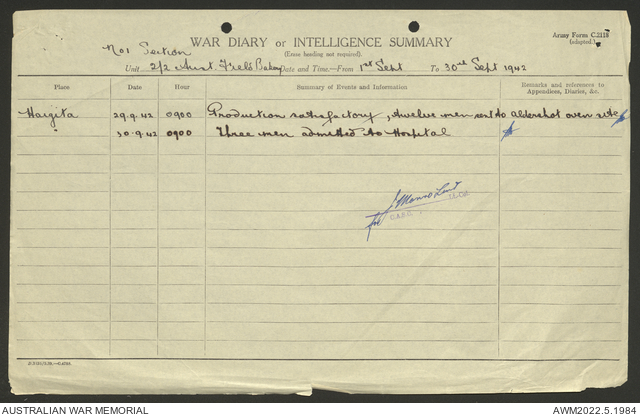 Army Form C.2118
(adapted.)
No 1 Section
WAR DIARY or INTELLIGENCE SUMMARY
(Erase heading not required).
Unit 2/2 Aust. Field Bakery Date and Time.—From 1st Sept To 30th Sept 1942
Place Date Hour Summary of Events and Information Remarks and references to Appendices, Diaries, &c.
Hargita 29.9.42 0900 Production satisfactory, twelve men sent to Aldershot oven site
" 30.9.42 0900 Three men admitted to Hospital
for Lieut
AUSTRALIAN WAR MEMORIAL
AWM2022.5.1984